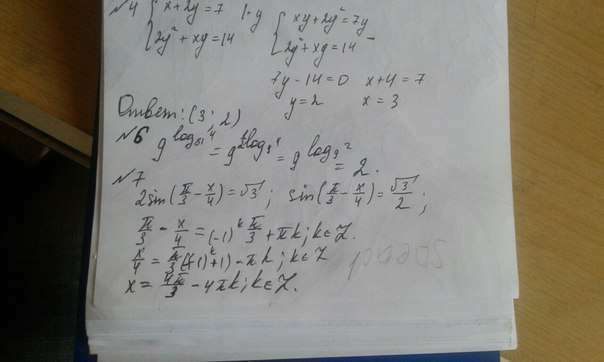 №4 { x+2y=7 |·y { xy+2y²=7y
2y²+xy=14 2y²+xy=14 -
7y-14=0 x+4=7
y=2 x=3
Ответ: (3; 2)
№6 9^{log_{81} 4} = 9^{log_9} = 9^{log_9 2} = 2.
№7
2sin(π/3 - x/4) = √3; sin(π/3 - x/4) = √3/2;
π/3 - x/4 = (-1)^k π/3 + πk; k∈Z.
x/4 = π/3((-1)^k+1) - πk; k∈Z
x = 4π/3 - 4πk; k∈Z.